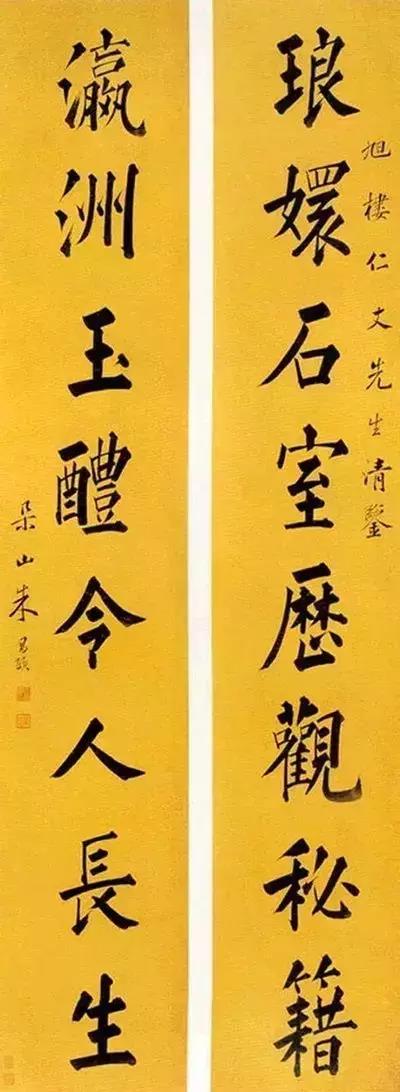 旭樓仁丈先生清鑒
琅嬛石室歷觀秘籍
瀛洲玉醴令人長生
朶山朱昌頤